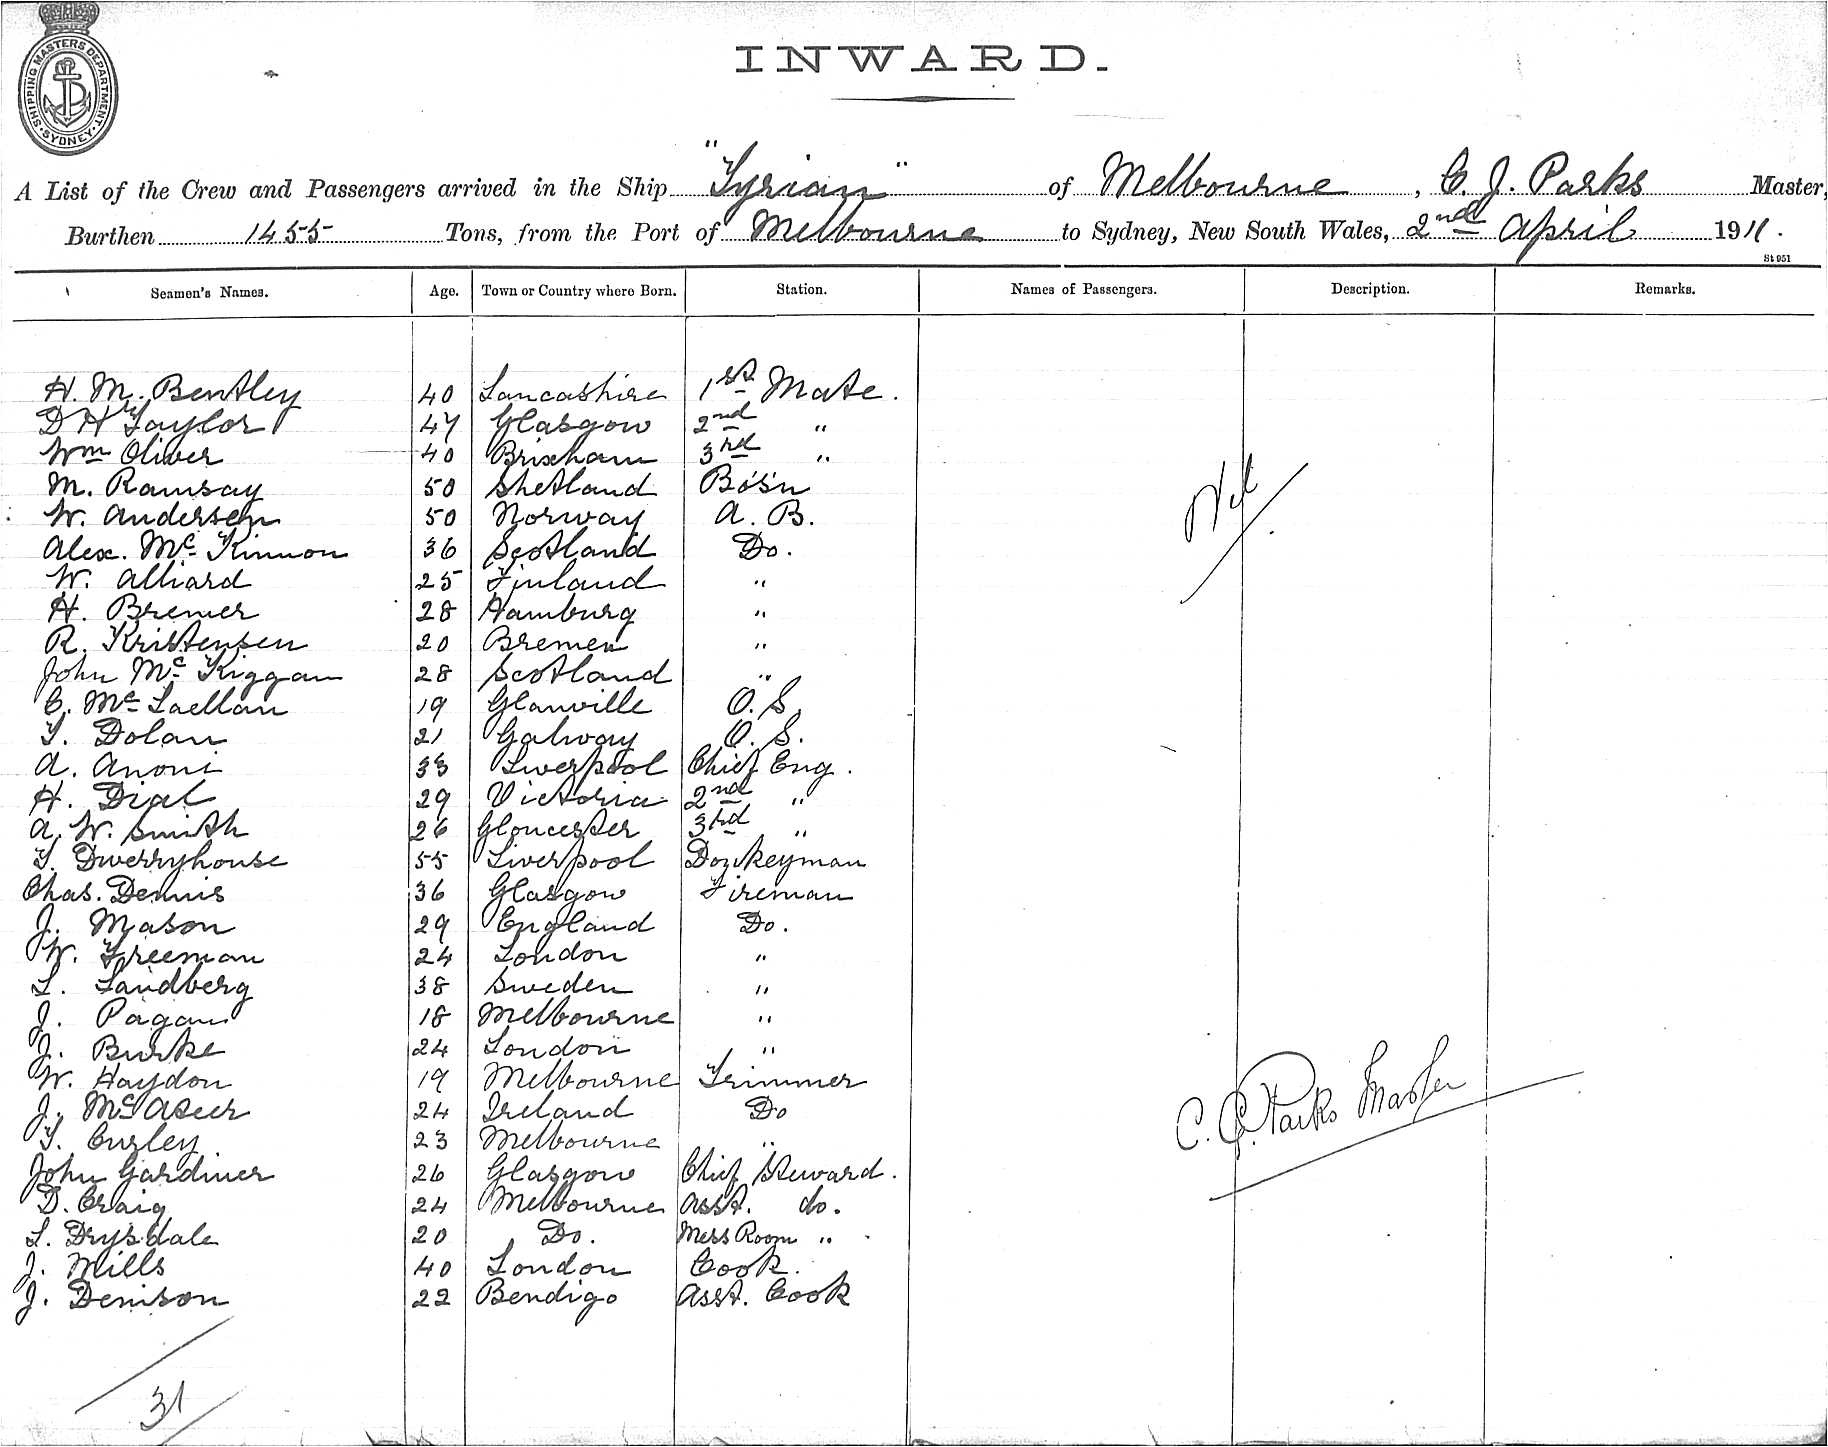 SHIPPING MASTERS DEPARTMENT
· SYDNEY ·
INWARD.
A List of the Crew and Passengers arrived in the Ship "Tyrian" of Melbourne, C. J. Parks Master,
Burthen 1455 Tons, from the Port of Melbourne to Sydney, New South Wales, 2nd April 1911.
St 951
Seamen's Names. Age. Town or Country where Born. Station. Names of Passengers. Description. Remarks.
H. M. Bentley 40 Lancashire 1st Mate.
D H Taylor 47 Glasgow 2nd "
Wm Oliver 40 Brixham 3rd "
M. Ramsay 50 Shetland Bo's'n
W. Andersen 50 Norway A. B.
Nil
Alex. Mc Kinnon 36 Scotland Do.
W. Alliard 25 Finland "
H. Bremer 28 Hamburg "
R. Kristensen 20 Bremen "
John Mc Kiggan 28 Scotland "
C. Mc Laellan 19 Glanville O. S.
T. Dolan 21 Galway O. S.
A. Anoni 33 Liverpool Chief Eng.
H. Dial 29 Victoria 2nd "
A. W. Smith 26 Gloucester 3rd "
T. Dwerryhouse 55 Liverpool Donkeyman
Chas. Dennis 36 Glasgow Fireman
J. Mason 29 England Do.
W. Freeman 24 London "
L. Sandberg 38 Sweden "
J. Pagan 18 Melbourne "
J. Burke 24 London "
W. Haydon 19 Melbourne Trimmer
J. Mc 24 Ireland Do
C. J. Parks Master
T. Curley 23 Melbourne "
John Gardiner 26 Glasgow Chief Steward.
D. Craig 24 Melbourne Asst. do.
L. Drysdale 20 Do. Mess Room "
J. Mills 40 London Cook.
J. Denison 22 Bendigo Asst. Cook
31